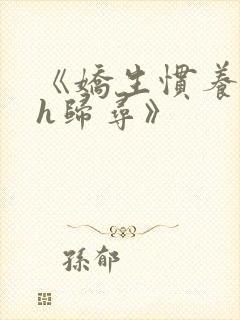 《嬌生慣養
h歸尋》
孫郁